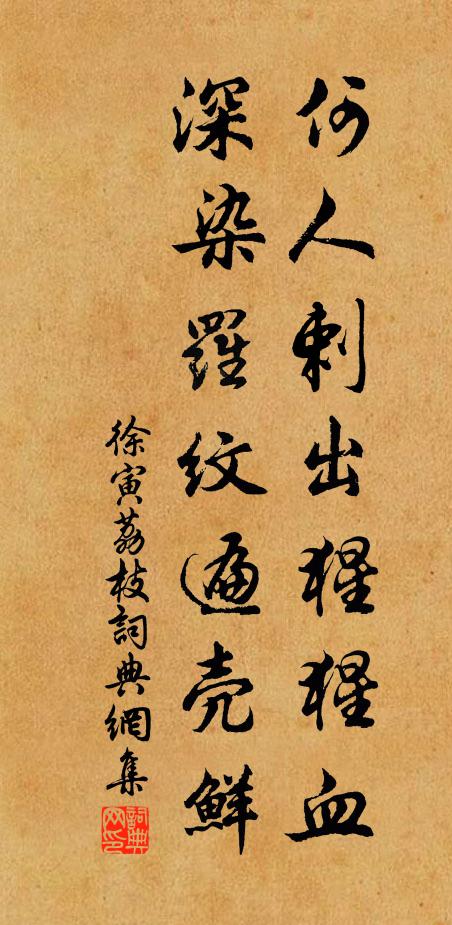 何人刺出猩猩血
深染羅紋遍壳鮮
徐寅荔枝詞典網集
詞典網印